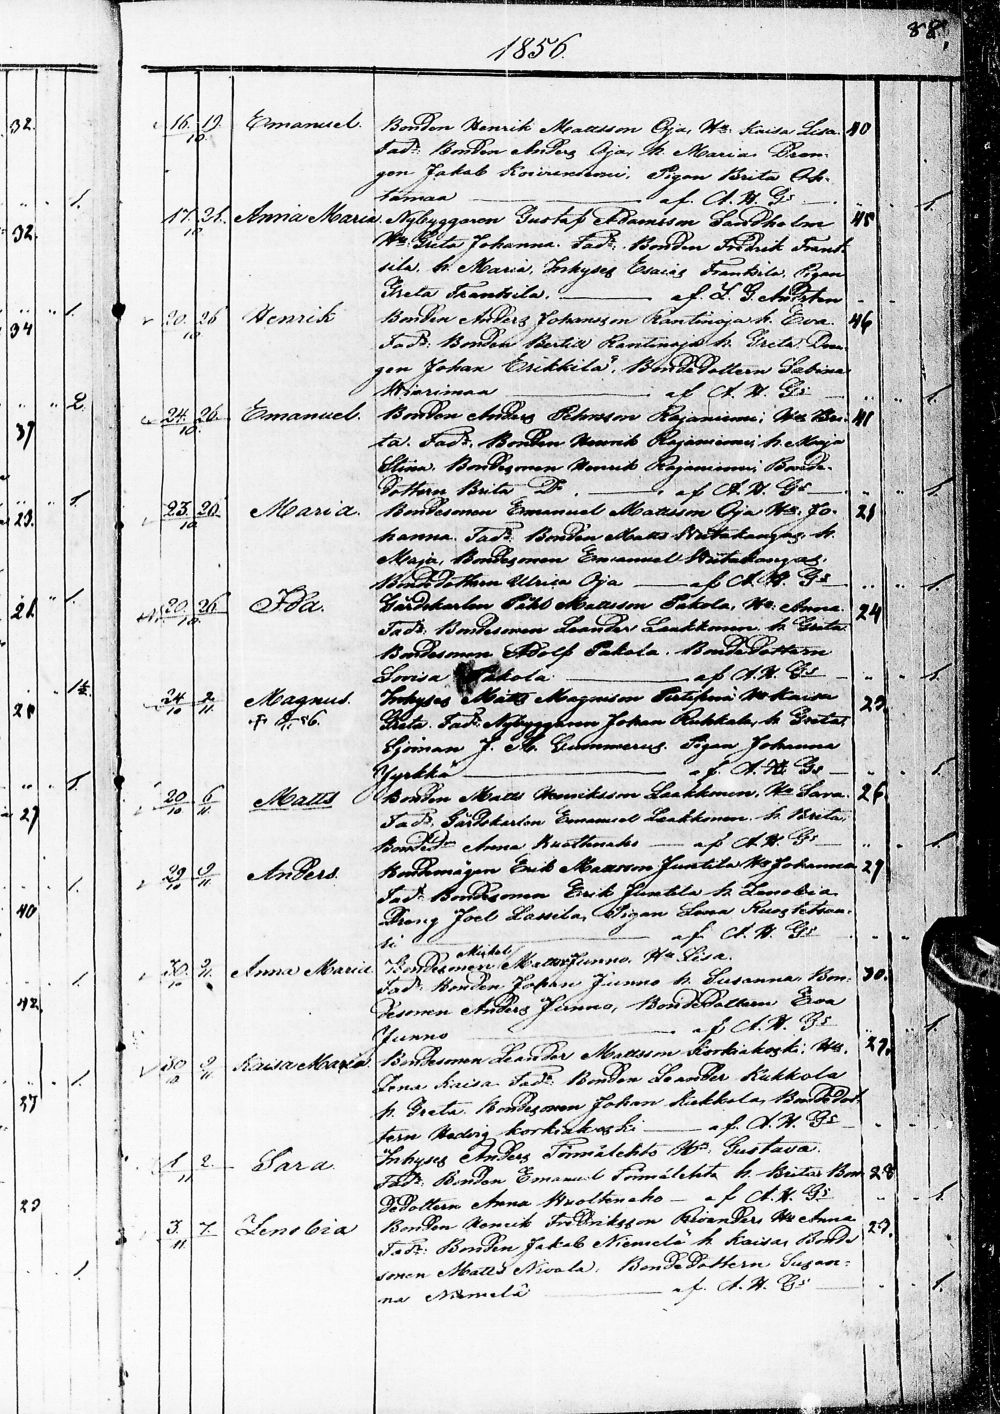 88.
1856.
16. 19. Emanuel. Bonden Henrik Mattsson Oja, H: Kaisa Lisa. 40
10 Fadd: Bonden Anders Oja, h. Maria. Dren-
gen Jakob Koivuniemi, Pigan Brita
af A. H. Gs 1.
17. 21. Anna Maria. Nybyggaren Gustaf Adamsson Sandholm 45
10 H: Greta Johanna. Fadd: Bonden Fredrik Frant-
sila, h. Maria, Inhyses Esaias Frantsila, Pigan
Greta Frantsila. af L. G.
20. 26 Henrik Bonden Anders Johansson Rantinoja h. Eva. 46
10 Fadd: Bonden Bertil Rantinoja h. Greta, Dren-
gen Johan Erikkilä, Bondedottern Sabina
af A. H. Gs 1.
24. 26. Emanuel. Bonden Anders Pehrsson Rajaniemi, H: Bri- 41
10 ta. Fadd: Bonden Henrik Rajaniemi, h. Maja
Stina. Bondesonen Henrik Rajaniemi, Bonde-
dottern Brita Do. af A. H. Gs 1.
23. 20. Maria. Bondesonen Emanuel Mattsson Oja H: Jo- 21
10 hanna. Fadd: Bonden Matts Wiitakangas h.
Maja, Bondesonen Emanuel Wiitakangas,
Bondedottern Ulrica Oja af A. H. Gs 1.
20. 26 Ida. Gårdskarlen Mattsson Pakola, H: Anna. 24
10 Fadd: Bondesonen Leander Laakkonen h. Greta.
Bondesonen Adolf Pakola. Bondedottern
Lovisa Pakola af A. H. Gs 1.
24 2 Magnus. Inhyses Matts Magnsson H: Kaisa 23.
10 11 Greta. Fadd: Nybyggaren Johan Rukkala, h. Greta,
Sjöman J. Gummerus. Pigan Johanna
Yrkkä af A. H. Gs 1.
20 6 Matts Bonden Matts Henriksson Laakkonen, H: Sara. 26.
10 11 Fadd: Gårdskarlen Emanuel Laakkonen h. Brita,
Anna af A. H. Gs 1.
29 9 Anders. Bondemågen Erik Mattsson Juntila H: Johanna 29
10 11 Fadd: Bondesonen Erik Juntila h. Zenobia,
Dreng Joel Lassila, Pigan Lena
af A. H. Gs
Michel
30. 2. Anna Maria. Bondesonen Matts Junno, H: Lisa. 30.
10 11 Fadd: Bonden Johan Junno h. Susanna, Bon-
desonen Anders Junno, Bondedottern Eva
Junno af A. H. Gs 1.
30 9 Kaisa Maria Bondesonen Leander Mattsson Korkiakoski, H: 27.
10 11 Lena Kaisa. Fadd: Bonden Leander Kukkola
h. Greta. Bondesonen Johan Kukkola, Bondedot-
tern Hedvig Korkiakoski af A. H. Gs
1 2. Sara Inhyses Anders Törmälehto H: Gustava.
11 Fadd: Bonden Emanuel Törmälehto h. Brita. Bon- 28
dedottern Anna af A. H. Gs 1.
3. 7. Zenobia Bonden Henrik Fredriksson H: Anna 29.
11 Fadd: Bonden Jakob Niemelä h. Kaisa, Bonde-
sonen Matts Nivala, Bondedottern Susan-
na Niemelä af A. H. Gs 1.